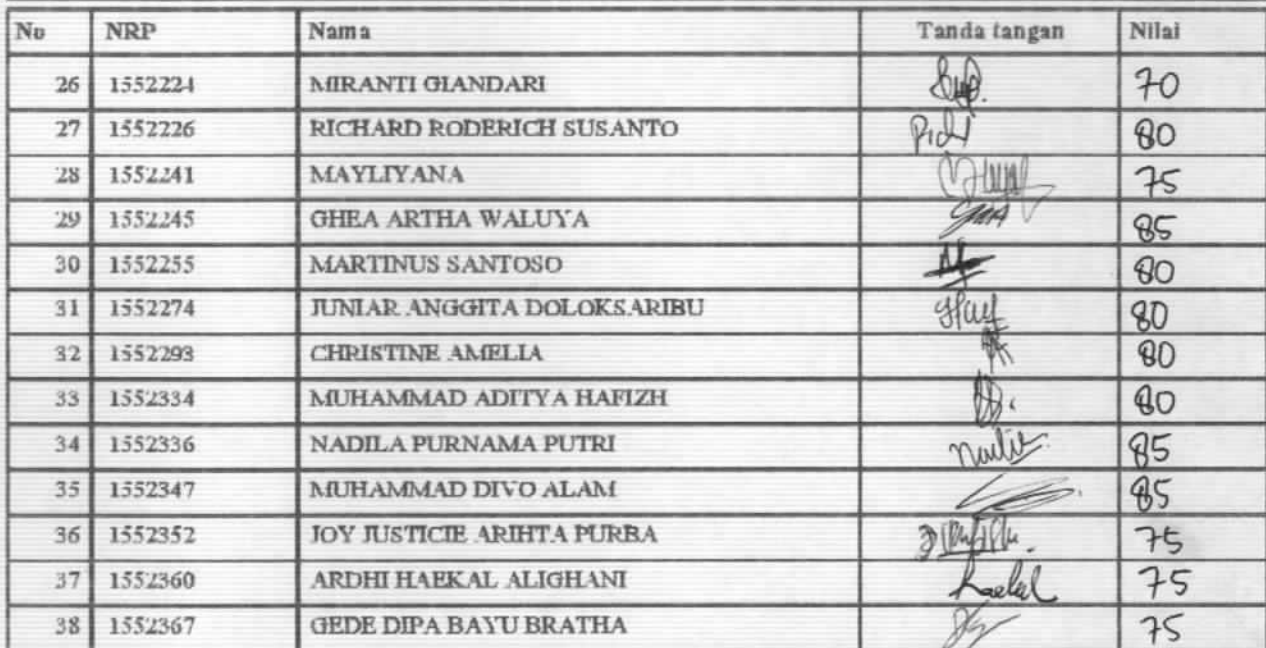 No NRP Nama Tanda tangan Nilai
26 1552224 MIRANTI GIANDARI 70
27 1552226 RICHARD RODERICH SUSANTO 80
28 1552241 MAYLIYANA 75
29 1552245 GHEA ARTHA WALUYA 85
30 1552255 MARTINUS SANTOSO 80
31 1552274 JUNIAR ANGGITA DOLOKSARIBU 80
32 1552293 CHRISTINE AMELIA 80
33 1552334 MUHAMMAD ADITYA HAFIZH 80
34 1552336 NADILA PURNAMA PUTRI 85
35 1552347 MUHAMMAD DIVO ALAM 85
36 1552352 JOY JUSTICIE ARIHTA PURBA 75
37 1552360 ARDHI HAEKAL ALIGHANI Haekal 75
38 1552367 GEDE DIPA BAYU BRATHA 75